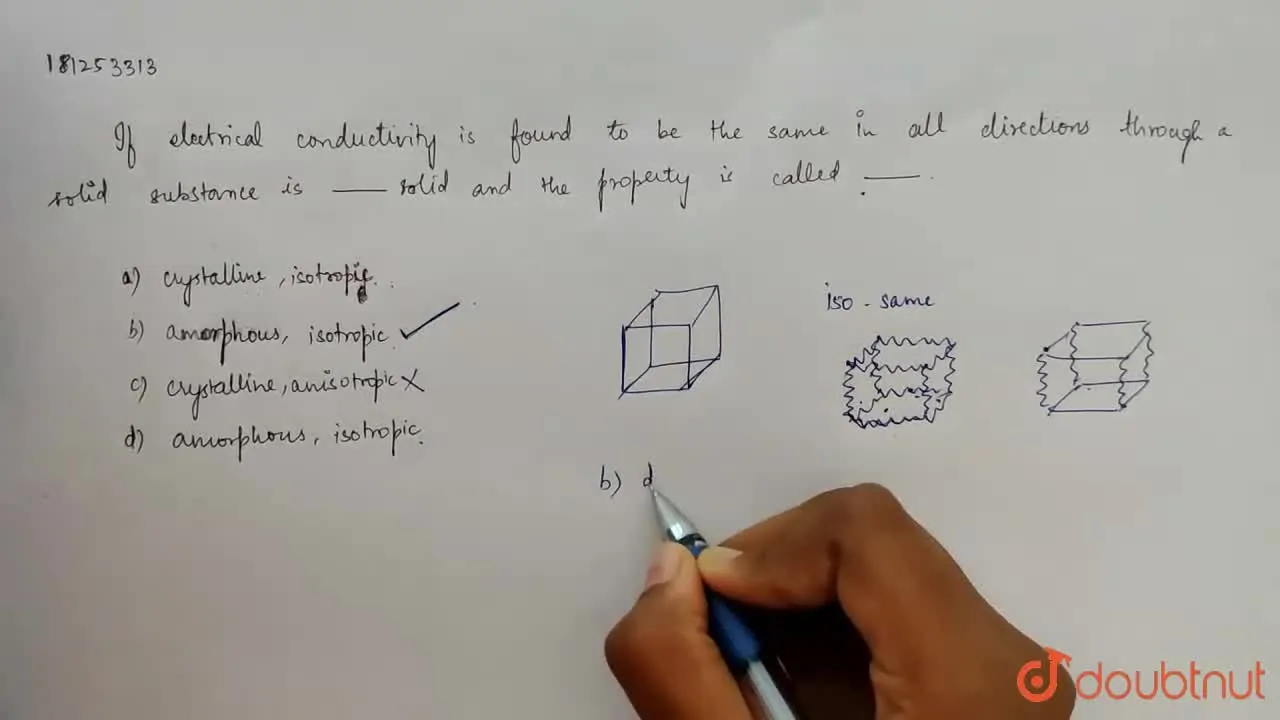 181253313
If electrical conductivity is found to be the same in all directions through a
solid substance is ___ solid and the property is called ___.
a) crystalline, isotropic.
b) amorphous, isotropic.
c) crystalline, anisotropic X
d) amorphous, isotropic.
iso - same
b) d
doubtnut